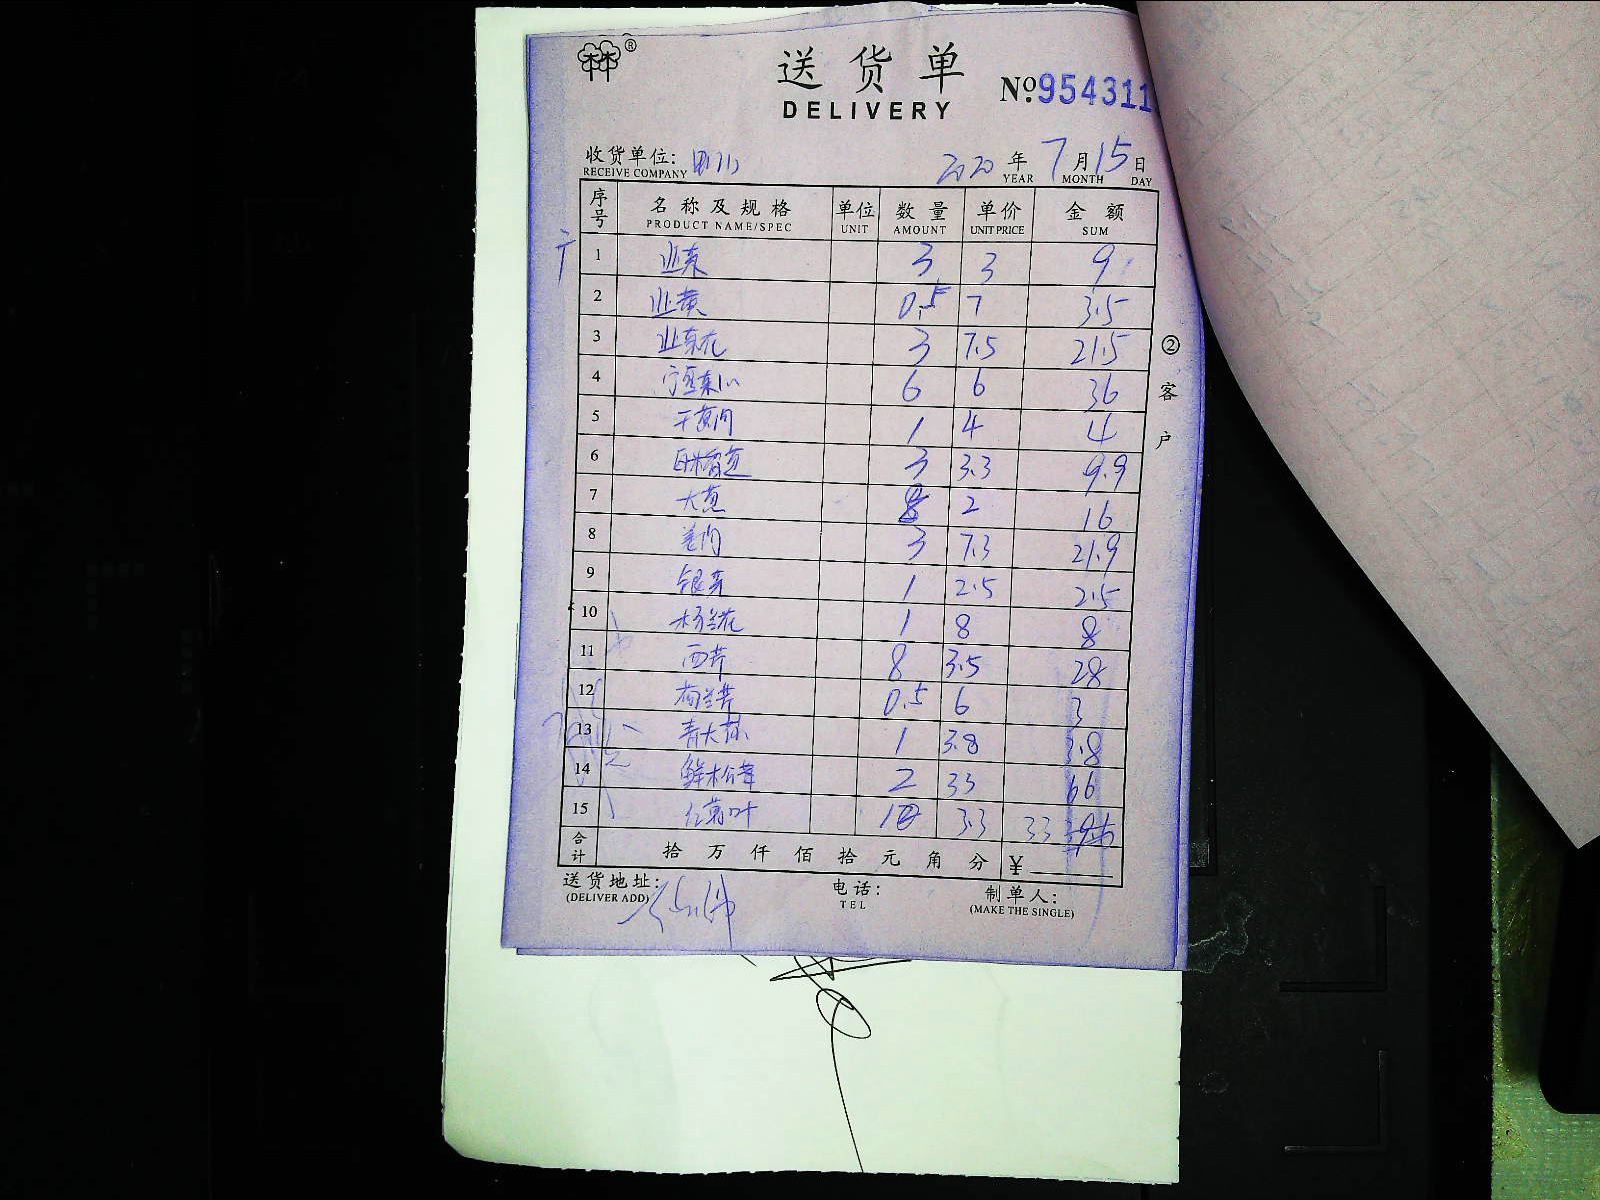 林®
送货单
DELIVERY
№.954311
收货单位: 2020年7月15日
RECEIVE COMPANY YEAR MONTH DAY
序号 名称及规格 单位 数量 单价 金额
PRODUCT NAME/SPEC UNIT AMOUNT UNIT PRICE SUM
1 韭菜 3 3 9
2 韭黄 0.5 7 3.5
3 韭菜花 3 7.5 21.5
4 6 6 36
5 干葱肉 1 4 4
6 3 3.3 9.9
7 大葱 8 2 16
8 姜肉 3 7.3 21.9
9 银芽 1 2.5 2.5
10 1 8 8
11 西芹 8 3.5 28
12 荷兰芹 0.5 6 3
13 1 3.8 3.8
14 鲜松茸 2 33 66
15 10 3.3 33
合计 拾万仟佰拾元角分 ¥
送货地址: 电话: 制单人:
(DELIVER ADD) TEL (MAKE THE SINGLE)
②客户